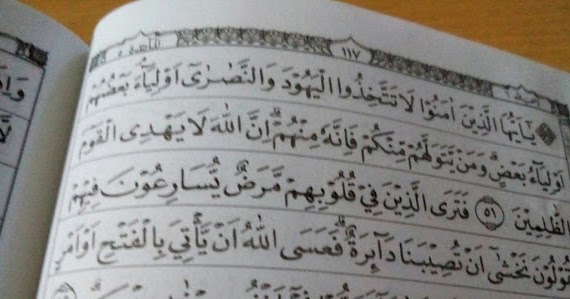 المائدة ٥ ١١٧
يٰٓاَيُّهَا الَّذِيْنَ اٰمَنُوْا لَا تَتَّخِذُوا الْيَهُوْدَ وَالنَّصٰرٰٓى اَوْلِيَاۤءَ بَعْضُهُمْ
اَوْلِيَاۤءُ بَعْضٍ وَمَنْ يَّتَوَلَّهُمْ مِّنْكُمْ فَاِنَّهٗ مِنْهُمْ اِنَّ اللّٰهَ لَا يَهْدِى الْقَوْمَ
الظّٰلِمِيْنَ ٥١ فَتَرَى الَّذِيْنَ فِيْ قُلُوْبِهِمْ مَّرَضٌ يُّسَارِعُوْنَ فِيْهِمْ
يَقُوْلُوْنَ نَخْشٰٓى اَنْ تُصِيْبَنَا دَاۤىِٕرَةٌ فَعَسَى اللّٰهُ اَنْ يَّأْتِيَ بِالْفَتْحِ اَوْ اَمْرٍ